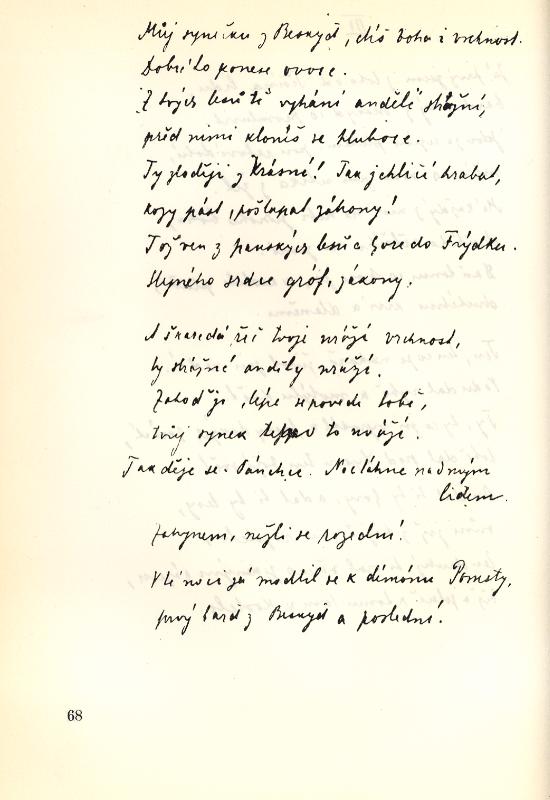 Můj synečku z Beskyd, ctíš boha i vrchnost.
Dobré to ponese ovoce.
Z tvých lesů tě vyhání andělé strážní,
před nimi kloníš se hluboce.
Ty zloději z Krásné! Tak jehličí hrabat,
kozy pást, pošlapat záhony!
Tož ven z panských lesů a hore do Frýdku.
Stejného srdce gróf, zákony.
A škaredá řeč tvoje uráží vrchnost,
ty strážné anděly uráží.
Zahoď ji, lépe se povede tobě,
tvůj synek to uváží.
Tak děje se. Pánchce. Noc táhne nad mým
lidem.
Zahynem, nežli se rozední.
V té noci já modlil se k démónu Pomsty,
prvý bard z Beskyd a poslední.
68